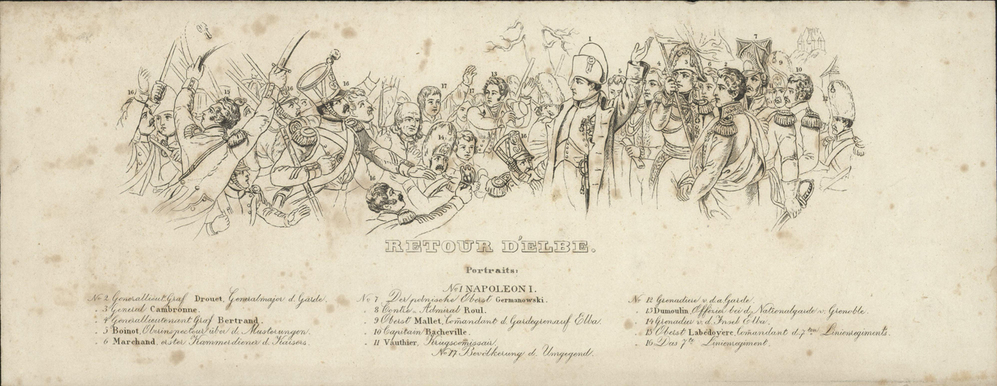 RETOUR D'ELBE.
Portraits:
No 1 NAPOLEON I.
No 2 Generallieut. Graf Drouet, Generalmajor d. Garde.
3 General Cambronne.
4 Generallieutenant Graf Bertrand.
5 Boinot, Oberinspecteur über d. Musterungen.
6 Marchand, erster Kammerdiener d. Kaisers.
No 7 Der polnische Oberst Germanowski.
8 Contre-Admiral Roul.
9 Oberst Mallet, Comandant d. Gardegren. auf Elba.
10 Capitain Bacheville.
11 Vauthier, Kriegscomissair.
No 12 Grenadier v. d. a. Garde.
13 Dumoulin, Officier bei d. Nationalgarde v. Grenoble.
14 Grenadier v. d. Insel Elba.
15 Oberst Labedoyere, Comandant d. 7ten Linienregiments.
16 Das 7te Linienregiment.
No 17 Bevölkerung d. Umgegend.